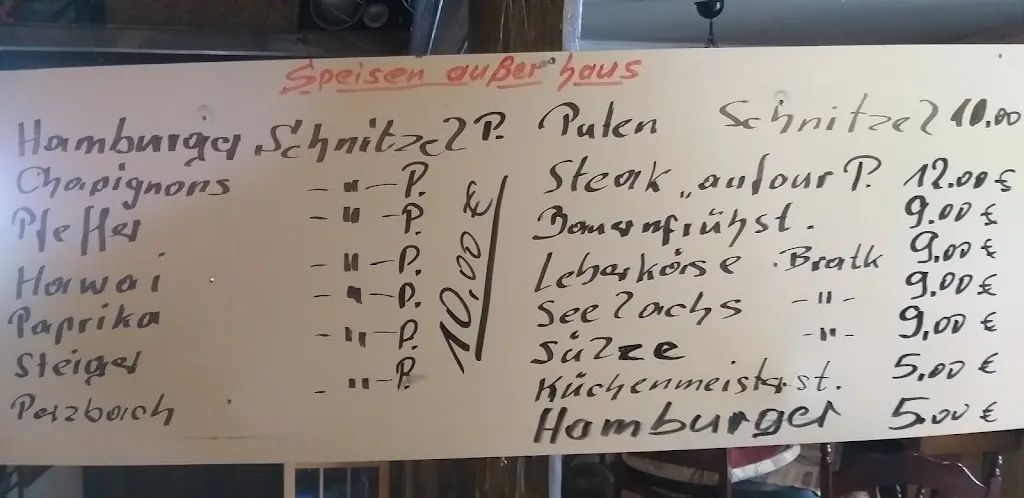 Speisen außer haus
Hamburger Schnitzel P.
Chapignons - " - P.
Pfeffer - " - P.
Hawai - " - P.
Paprika - " - P.
Steiger - " - P.
Perzbach - " - P.
10,00 €
Puten Schnitzel 10.00
Steak „aufour P. 12.00 €
Bauernfrühst. 9.00 €
Leberkäse Bratk 9,00 €
Seelachs - " - 9,00 €
Sülze - " - 9,00 €
Küchenmeisterst. 5,00 €
Hamburger 5.00 €